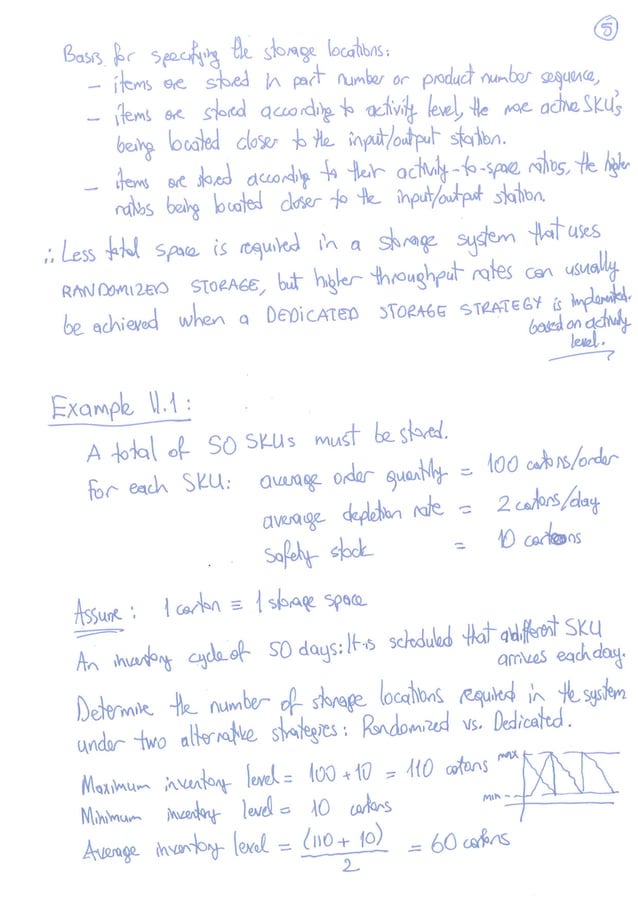 5
Basis for specifying the storage locations:
– items are stored in part number or product number sequence,
– items are stored according to activity level, the more active SKU's
being located closer to the input/output station.
– items are stored according to their activity-to-space ratios, the higher
ratios being located closer to the input/output station.
∴ Less total space is required in a storage system that uses
RANDOMIZED STORAGE, but higher throughput rates can usually
be achieved when a DEDICATED STORAGE STRATEGY is implemented.
based on activity
level.
Example 11.1:
A total of 50 SKUs must be stored.
For each SKU: average order quantity = 100 cartons/order
average depletion rate = 2 cartons/day
safety stock = 10 cartons
Assume: 1 carton ≡ 1 storage space
An inventory cycle of 50 days: It is scheduled that a different SKU
arrives each day.
Determine the number of storage locations required in the system
under two alternative strategies: Randomized vs. Dedicated.
Maximum inventory level = 100 + 10 = 110 cartons
max
Minimum inventory level = 10 cartons
min
Average inventory level = (110 + 10) / 2 = 60 cartons